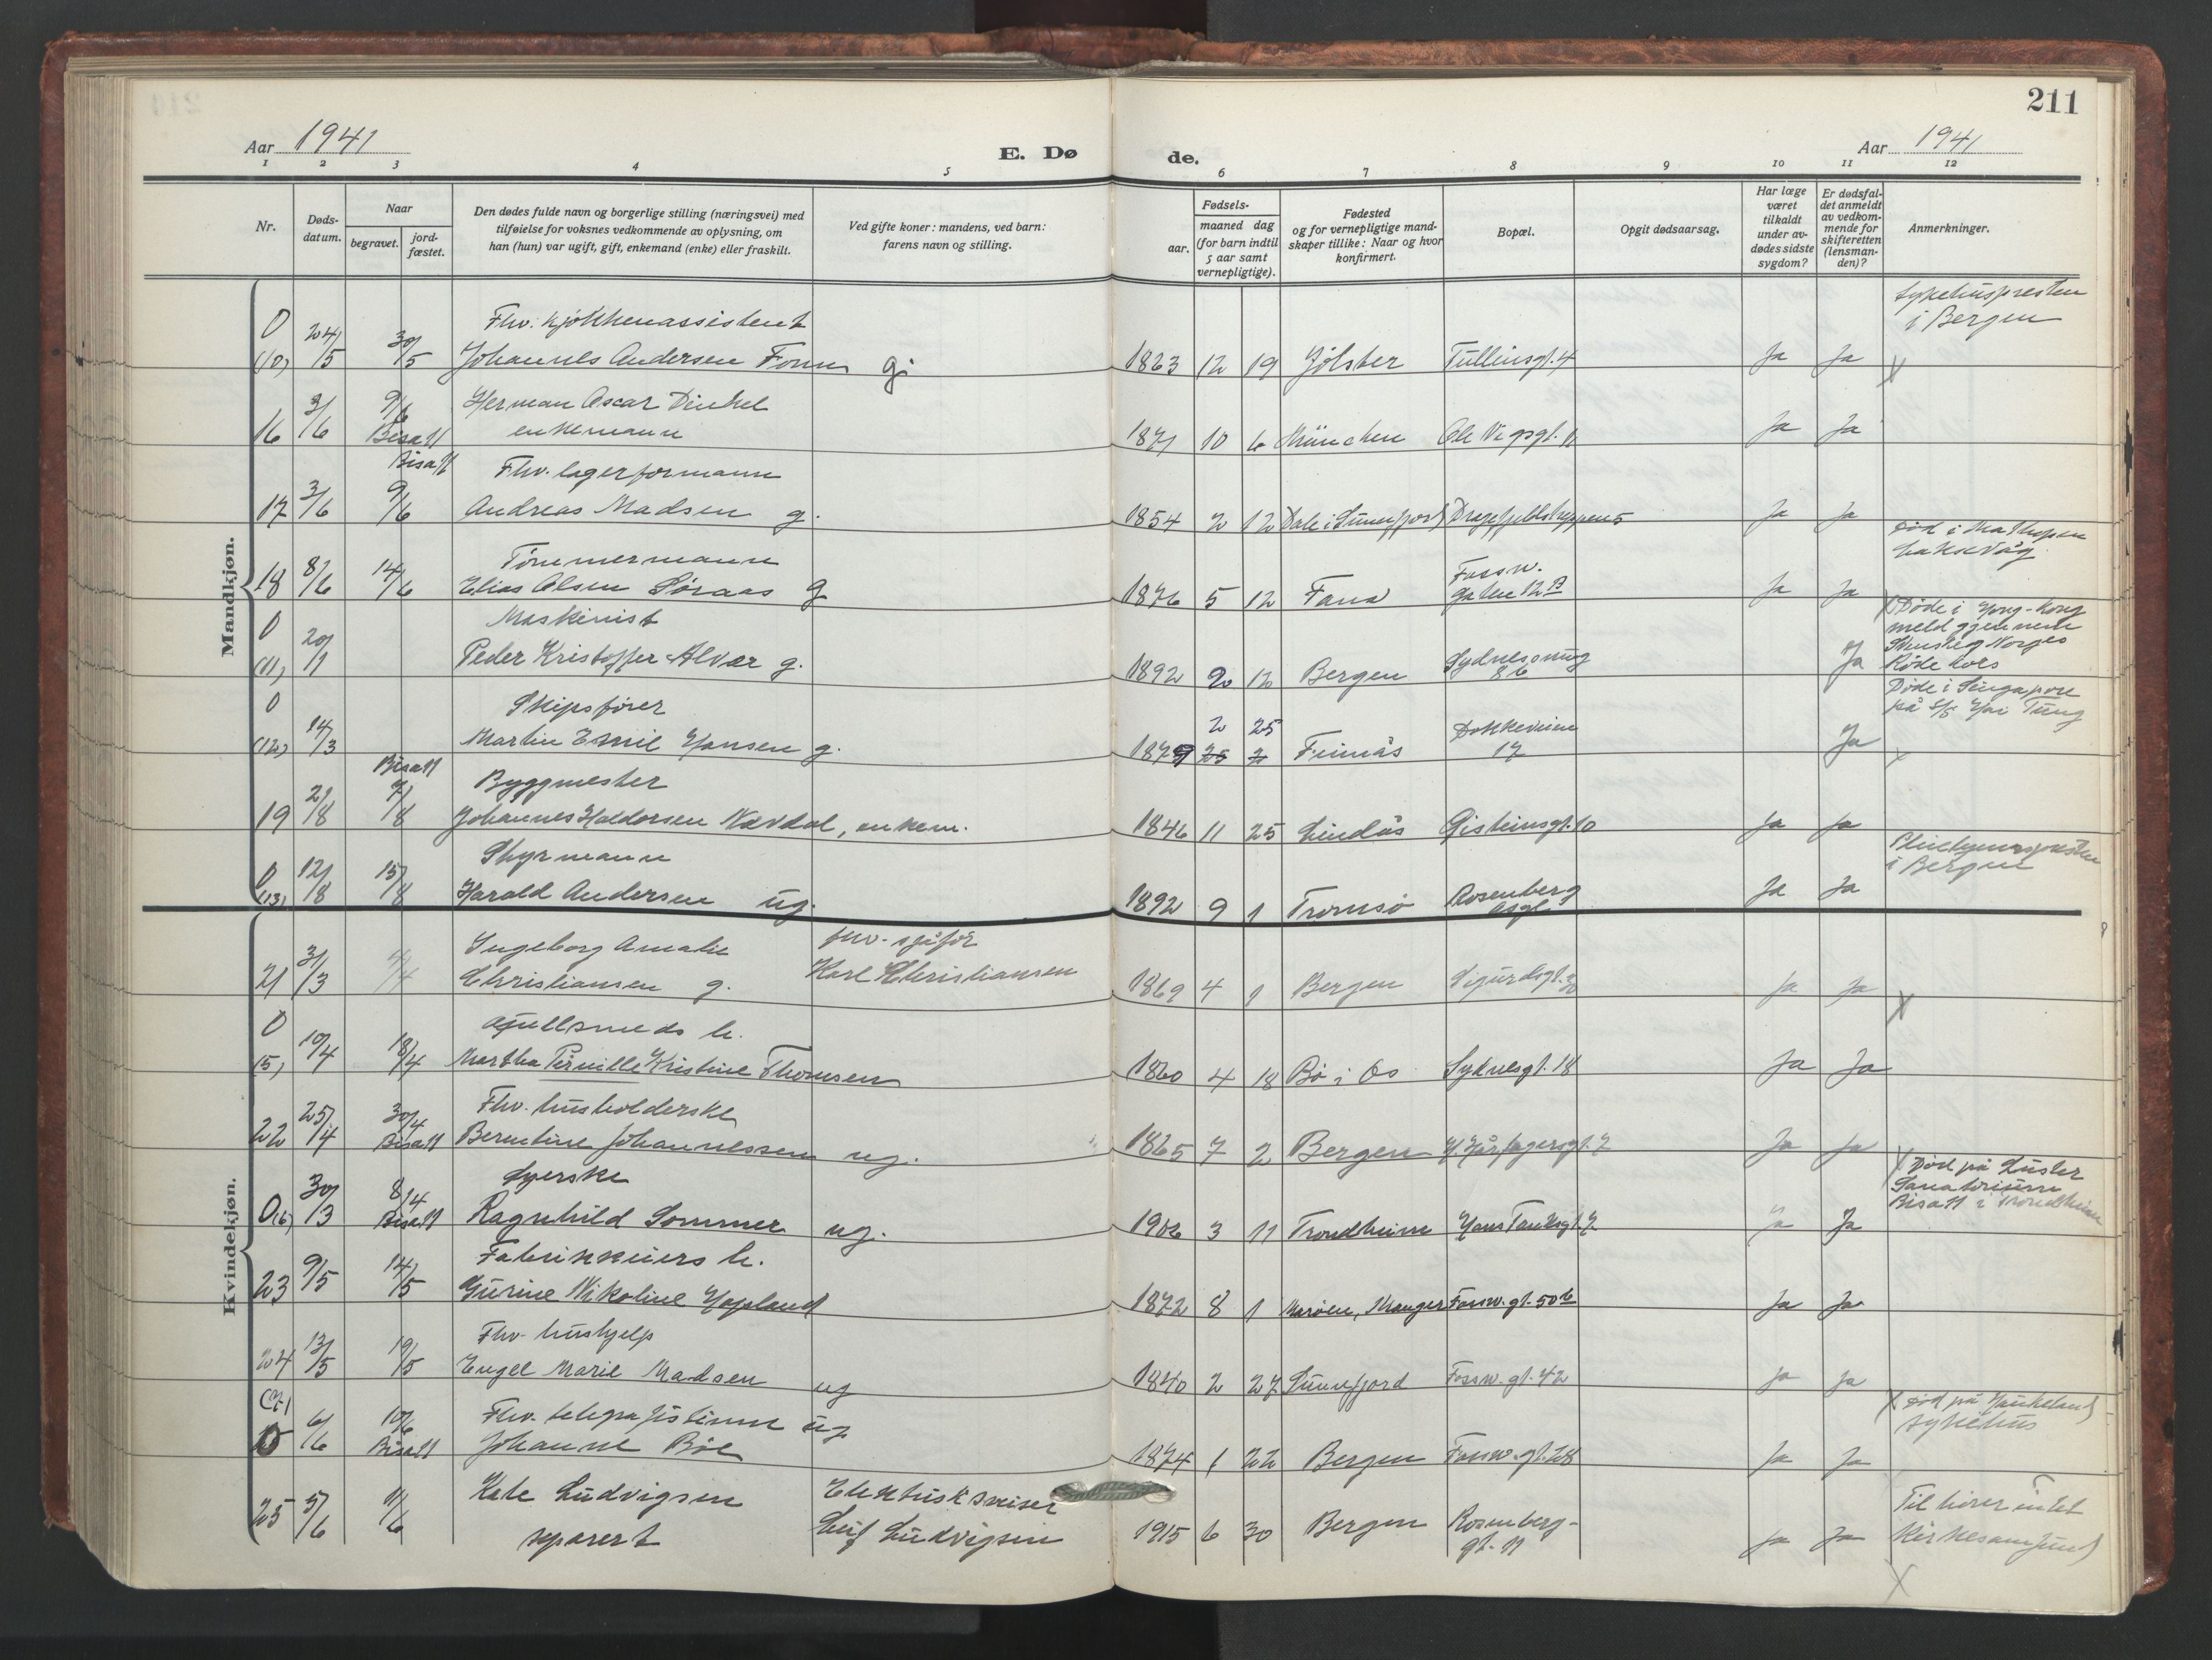 211
Aar 1941
E. Dø
de.
Aar 1941
1 2 3 4 5 6 7 8 9 10 11 12
Nr.
Døds-
datum.
Naar
begravet.
jord-
fæstet.
Den dødes fulde navn og borgerlige stilling (næringsvei) med
tilføielse for voksnes vedkommende av oplysning, om
han (hun) var ugift, gift, enkemand (enke) eller fraskilt.
Ved gifte koner: mandens, ved barn:
farens navn og stilling.
Fødsels-
aar.
maaned dag
(for barn indtil
5 aar samt
vernepligtige).
Fødested
og for vernepligtige mand-
skaper tillike: Naar og hvor
konfirmert.
Bopæl.
Opgit dødsaarsag.
Har læge
været
tilkaldt
under av-
dødes sidste
sygdom?
Er dødsfal-
det anmeldt
av vedkom-
mende for
skifteretten
(lensman-
den)?
Anmerkninger.
Mandkjøn.
0 24/5 30/5 Fhv. kjøkkenassistent sykehuspresten
i Bergen
(10) Johannes Andersen Fonn g. 1863 12 19 Jølster Tullinsgt. 4 Ja Ja X
16 3/6 9/6 Herman Oscar Dinkel
Bisatt enkemann 1871 10 6 München Ole Vigsgt. 11 Ja Ja
Bisatt Fhv. lagerformann
17 3/6 9/6 Andreas Madsen g. 1854 2 12 Dale i Sunnfjord Dragefjellstrappen 5 Ja Ja
Tømmermann Død i
Laksevåg.
18 8/6 14/6 Elias Olsen Søraas g 1876 5 12 Fana Fossw.
gaten 12 B Ja Ja
0 Maskinist X Døde i Hong-Kong
meld gjennem
Norges
Røde kors
(11) 20/1 Peder Kristoffer Alvær g. 1892 2 12 Bergen Sydnessmug
8b Ja
0 Skipsfører Døde i Singapore
på S/S Hai Tung
(12) 14/3 Martin Emil Hansen g. 1879 2 25 Dokkeveien
17 Ja X
Bisatt Byggmester
19 2/8 7/8 Johannes Haldorsen Nævdal, enkem. 1846 11 25 Lindås Gisteinsgt. 10 Ja Ja
0 Styrmann
i Bergen
(13) 12/8 15/8 Harald Andersen ug. 1892 9 1 Tromsø Rosenberg
gt. Ja Ja
Kvindekjøn.
Ingeborg Amalie fhv. sjåfør
21 31/3 Christiansen g. Karl Christiansen 1869 4 1 Bergen Sigurdsgt. Ja Ja X
0 Gullsmeds h.
(5) 10/4 18/4 Martha Pernille Kristine Thomsen 1860 4 18 Bø i Os Sydnesgt. 18 Ja Ja
Fhv. husholderske
22 25/4 30/4 Bisatt Berntine Johannessen ug. 1865 7 2 Bergen H. Hårfagersgt. 7 Ja Ja
Syerske X Død på Luster
Sanatorium
Bisatt i Trondheim
0 (6) 30/3 8/4 Bisatt Ragnhild Sommer ug. 1906 3 11 Trondheim Hans Tanksgt. 7 Ja Ja
Fabrikkeiers h.
23 9/5 14/5 Gurine Nikoline Hopland 1872 8 1 Marøen, Manger Fossw. gt. 50 b Ja Ja
Fhv. hushjelp
24 13/5 19/5 Engel Marie Madsen ug 1840 2 27 Sunnfjord Fossw. gt. 42 Ja Ja
(7) Fhv. telegrafistinne ug X Død på Haukeland
sykehus
0 6/6 10/6 Bisatt Johanne Bøe 1874 1 22 Bergen Fossw. gt. 28 Ja Ja
25 5/6 11/6 Kate Ludvigsen Elektrisk sveiser
separert Leif Ludvigsen 1915 6 30 Bergen Rosenberg-
gt. 11 Ja Ja Tilhører intet
kirkesamfund
X